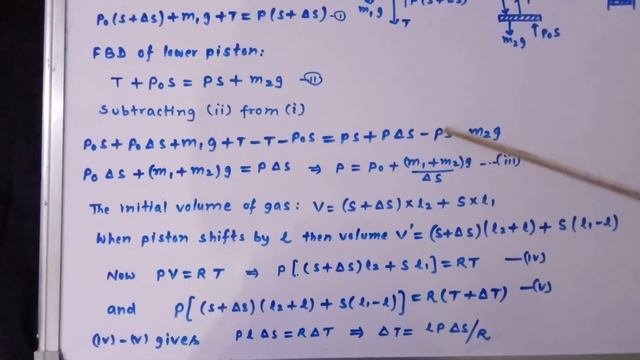 P₀(S+ΔS)+m₁g+T = P(S+ΔS) -ⓘ
m₁g
T
P(S+ΔS)
m₂g
P₀S
FBD of lower piston:
T + P₀S = PS + m₂g -ⓘⓘ
Subtracting (ii) from (i)
P₀S + P₀ΔS + m₁g + T - T - P₀S = PS + PΔS - PS m₂g
P₀ΔS + (m₁+m₂)g = PΔS ⇒ P = P₀ + (m₁+m₂)g/ΔS ---(iii)
The initial volume of gas: V = (S+ΔS)×l₂ + S×l₁
When piston shifts by l then volume V' = (S+ΔS)(l₂+l) + S(l₁-l)
Now PV = RT ⇒ P[(S+ΔS)l₂ + Sl₁] = RT —(iv)
and P[(S+ΔS)(l₂+l) + S(l₁-l)] = R(T+ΔT) —(v)
(iv)-(v) gives PlΔS = RΔT ⇒ ΔT = lPΔS/R